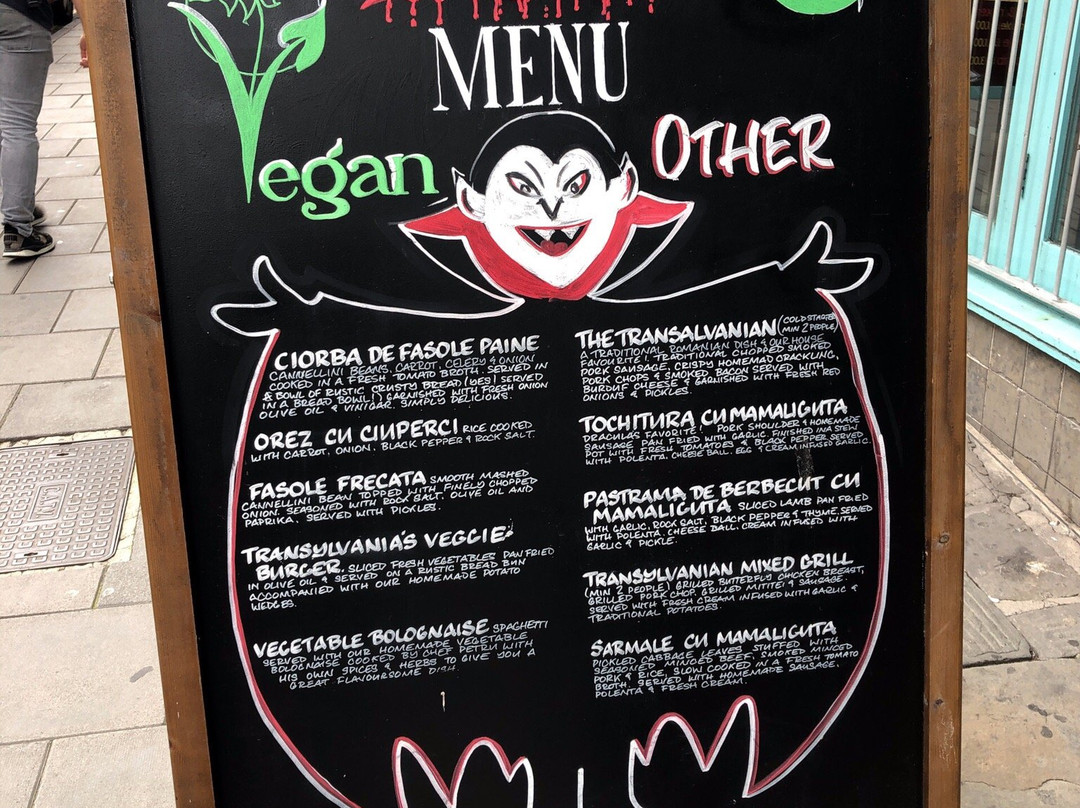 MENU
Vegan
CIORBA DE FASOLE PAINE
CANNELLINI BEANS, CARROT, CELERY & ONION
COOKED IN A FRESH TOMATO BROTH. SERVED IN
A BOWL OF RUSTIC CRUSTY BREAD (YES! SERVED
IN A BREAD BOWL!) GARNISHED WITH FRESH ONION
OLIVE OIL & VINIGAR. SIMPLY DELICIOUS.
OREZ CU CIUPERCI RICE COOKED
WITH CARROT, ONION, BLACK PEPPER & ROCK SALT.
FASOLE FRECATA SMOOTH MASHED
CANNELLINI BEAN TOPPED WITH FINELY CHOPPED
ONION. SEASONED WITH ROCK SALT, OLIVE OIL AND
PAPRIKA. SERVED WITH PICKLES.
TRANSYLVANIA'S VEGGIE
BURGER. SLICED FRESH VEGETABLES PAN FRIED
IN OLIVE OIL & SERVED ON A RUSTIC BREAD BUN
ACCOMPANIED WITH OUR HOMEMADE POTATO
WEDGES.
VEGETABLE BOLOGNAISE SPAGHETTI
SERVED WITH OUR HOMEMADE VEGETABLE
BOLOGNAISE COOKED BY CHEF PETRU WITH
HIS OWN SPICES & HERBS TO GIVE YOU A
GREAT FLAVOURSOME DISH.
OTHER
THE TRANSALVANIAN (COLD STARTER
MIN 2 PEOPLE)
A TRADITIONAL ROMANIAN DISH & OUR HOUSE
FAVOURITE! TRADITIONAL CHOPPED SMOKED
PORK SAUSAGE, CRISPY HOMEMAD CRACKLING,
PORK CHOPS & SMOKED BACON SERVED WITH
BURDUF CHEESE & GARNISHED WITH FRESH RED
ONIONS & PICKLES.
TOCHITURA CU MAMALIGUTA
DRACULA'S FAVORITE! PORK SHOULDER & HOMEMADE
SAUSAGE PAN FRIED WITH GARLIC. FINISHED IN A STEW
POT WITH FRESH TOMATOES & BLACK PEPPER. SERVED
WITH POLENTA, CHEESE BALL, EGG & CREAM INFUSED GARLIC.
PASTRAMA DE BERBECUT CU
MAMALIGUTA SLICED LAMB PAN FRIED
WITH GARLIC, ROCK SALT, BLACK PEPPER & THYME. SERVED
WITH POLENTA, CHEESE BALL, CREAM INFUSED WITH
GARLIC & PICKLE.
TRANSYLVANIAN MIXED GRILL
(MIN 2 PEOPLE) GRILLED BUTTERFLY CHICKEN BREAST,
GRILLED PORK CHOP, GRILLED MITITEI & SAUSAGE.
SERVED WITH FRESH CREAM INFUSED WITH GARLIC &
TRADITIONAL POTATOES.
SARMALE CU MAMALIGUTA
PICKLED CABBAGE LEAVES STUFFED WITH
SEASONED MINCED BEEF, SMOKED MINCED
PORK & RICE, SLOW COOKED IN A FRESH TOMATO
BROTH. SERVED WITH HOMEMADE SAUSAGE,
POLENTA & FRESH CREAM.